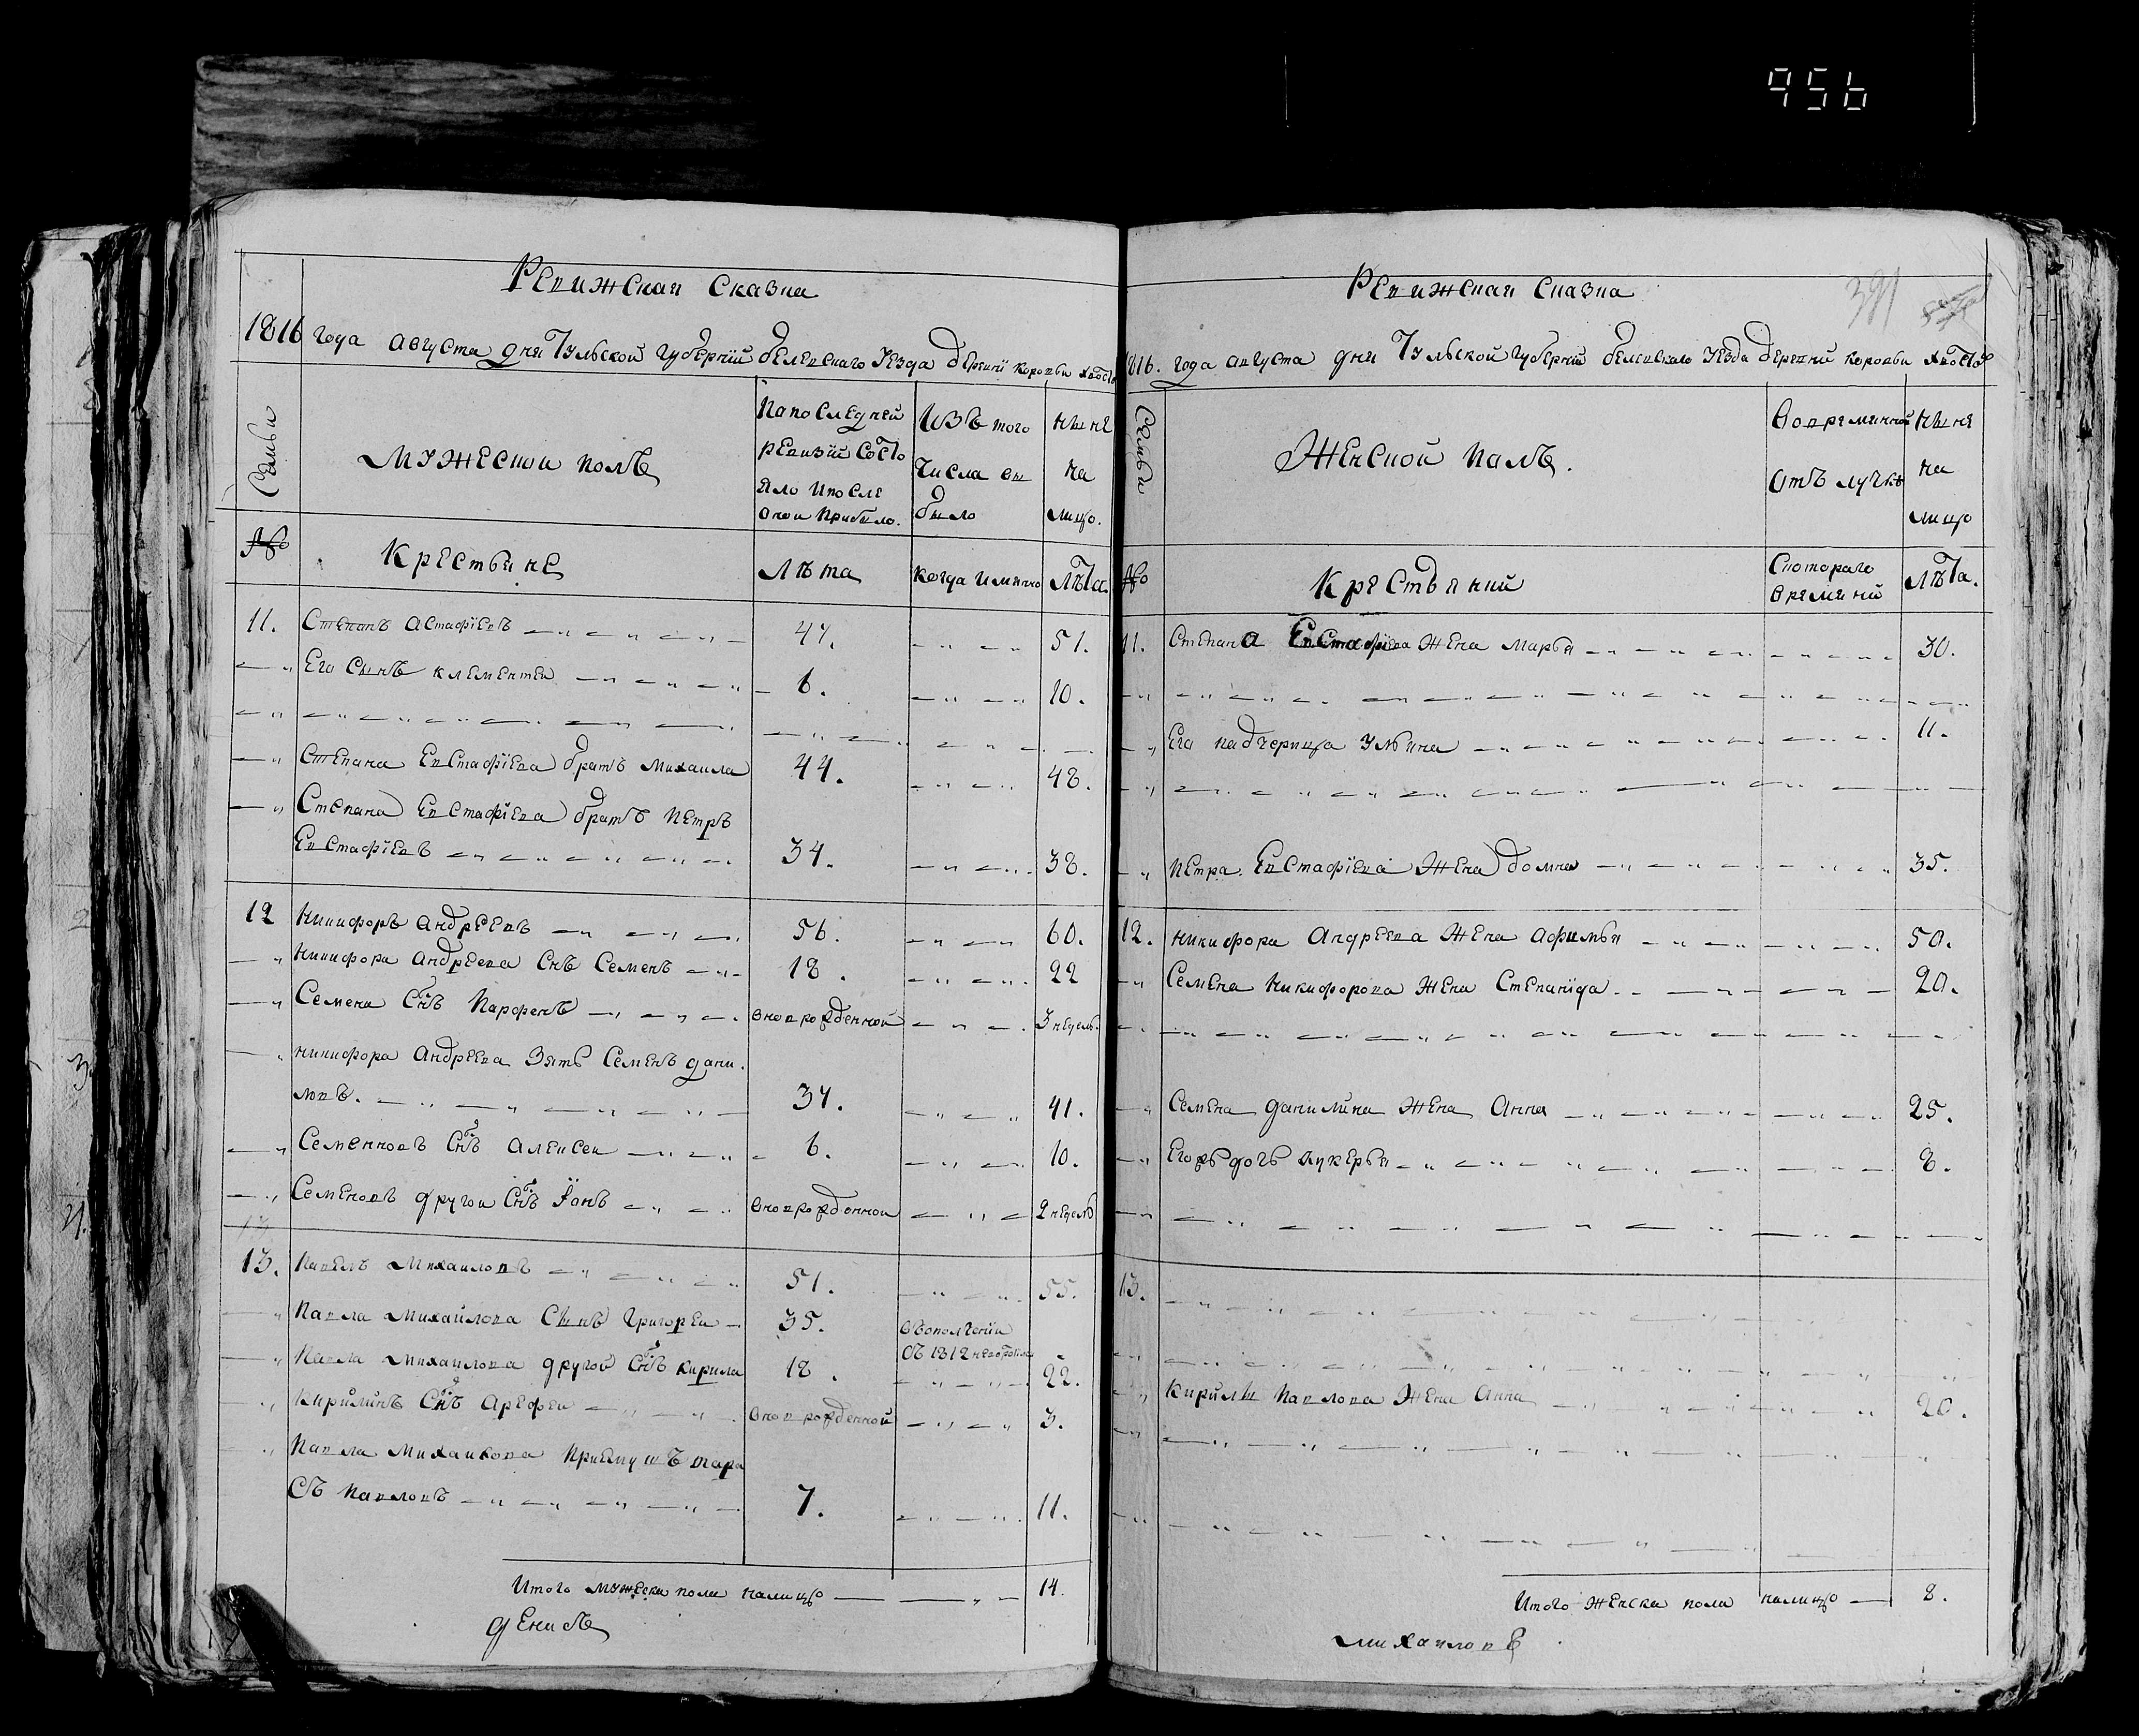 956
Ревижская Сказка
1816 года августа дня Тульской губерний белевскаго уезда деревни коровьи хвосты
Семьи
мужеской полъ
Напоследней
ревизий состо
яло ипосле
оной прибыло.
Изъ того
числа вы
было
ныне
на
лицо.
№
Крестьяне
Лѣта
когда имянно
Лѣта.
11. Степанъ Астафіевъ 47. 51.
Его Сынъ клементеи 6. 10.
Степана Евстафіева братъ михаила 44. 48.
Степана Евстафіева братъ петръ
Евстафіевъ 34. 38.
12 Никифоръ андреевъ 56. 60.
Никифора андреева Снъ Семенъ 18. 22
Семена Снъ Парфенъ вновь рожденной 3 недель.
никифора Андреева Зять Семенъ дани
ловъ. 37. 41.
Семенновъ Снъ Алексеи 6. 10.
Семеновъ другои Снъ Iванъ вноврожденнои 2 недель
13. Павелъ Михаиловъ 51. 55.
Павла михаилова Сынъ Григореи 35. вополчении
съ 1812
Павла михаилова другой Снъ кирила 18. 22.
Кирилинъ Снъ Арефеи вноврожденной 3.
Павла михаилова приемушъ тара
Съ Павловъ 7. 11.
Итого мужеска пола налицо 14.
денисъ
Ревижская Сказка
391
1816. года августа дня Тульской губерний белевскаго уезда деревни коровьи хвосты
Семьи
Женской палъ.
вовремянной
отъ лучкѣ
ныне
на
лицо
№
Крестьяний
Скотораго
времяний
лѣта.
11. Степана Евстафіева жена марья 30.
Ега падчерица ульяна 11.
петра Евстафіева Жена домна 35.
12. никифора Андреева жена афимья 50.
Семена никифорова жена Степанида 20.
Семена данилина жена Анна 25.
Егоръ дочь лукерья 8.
13.
Кирилы павлова жена Анна 20.
Итого женска пола налицо 8.
михаиловъ